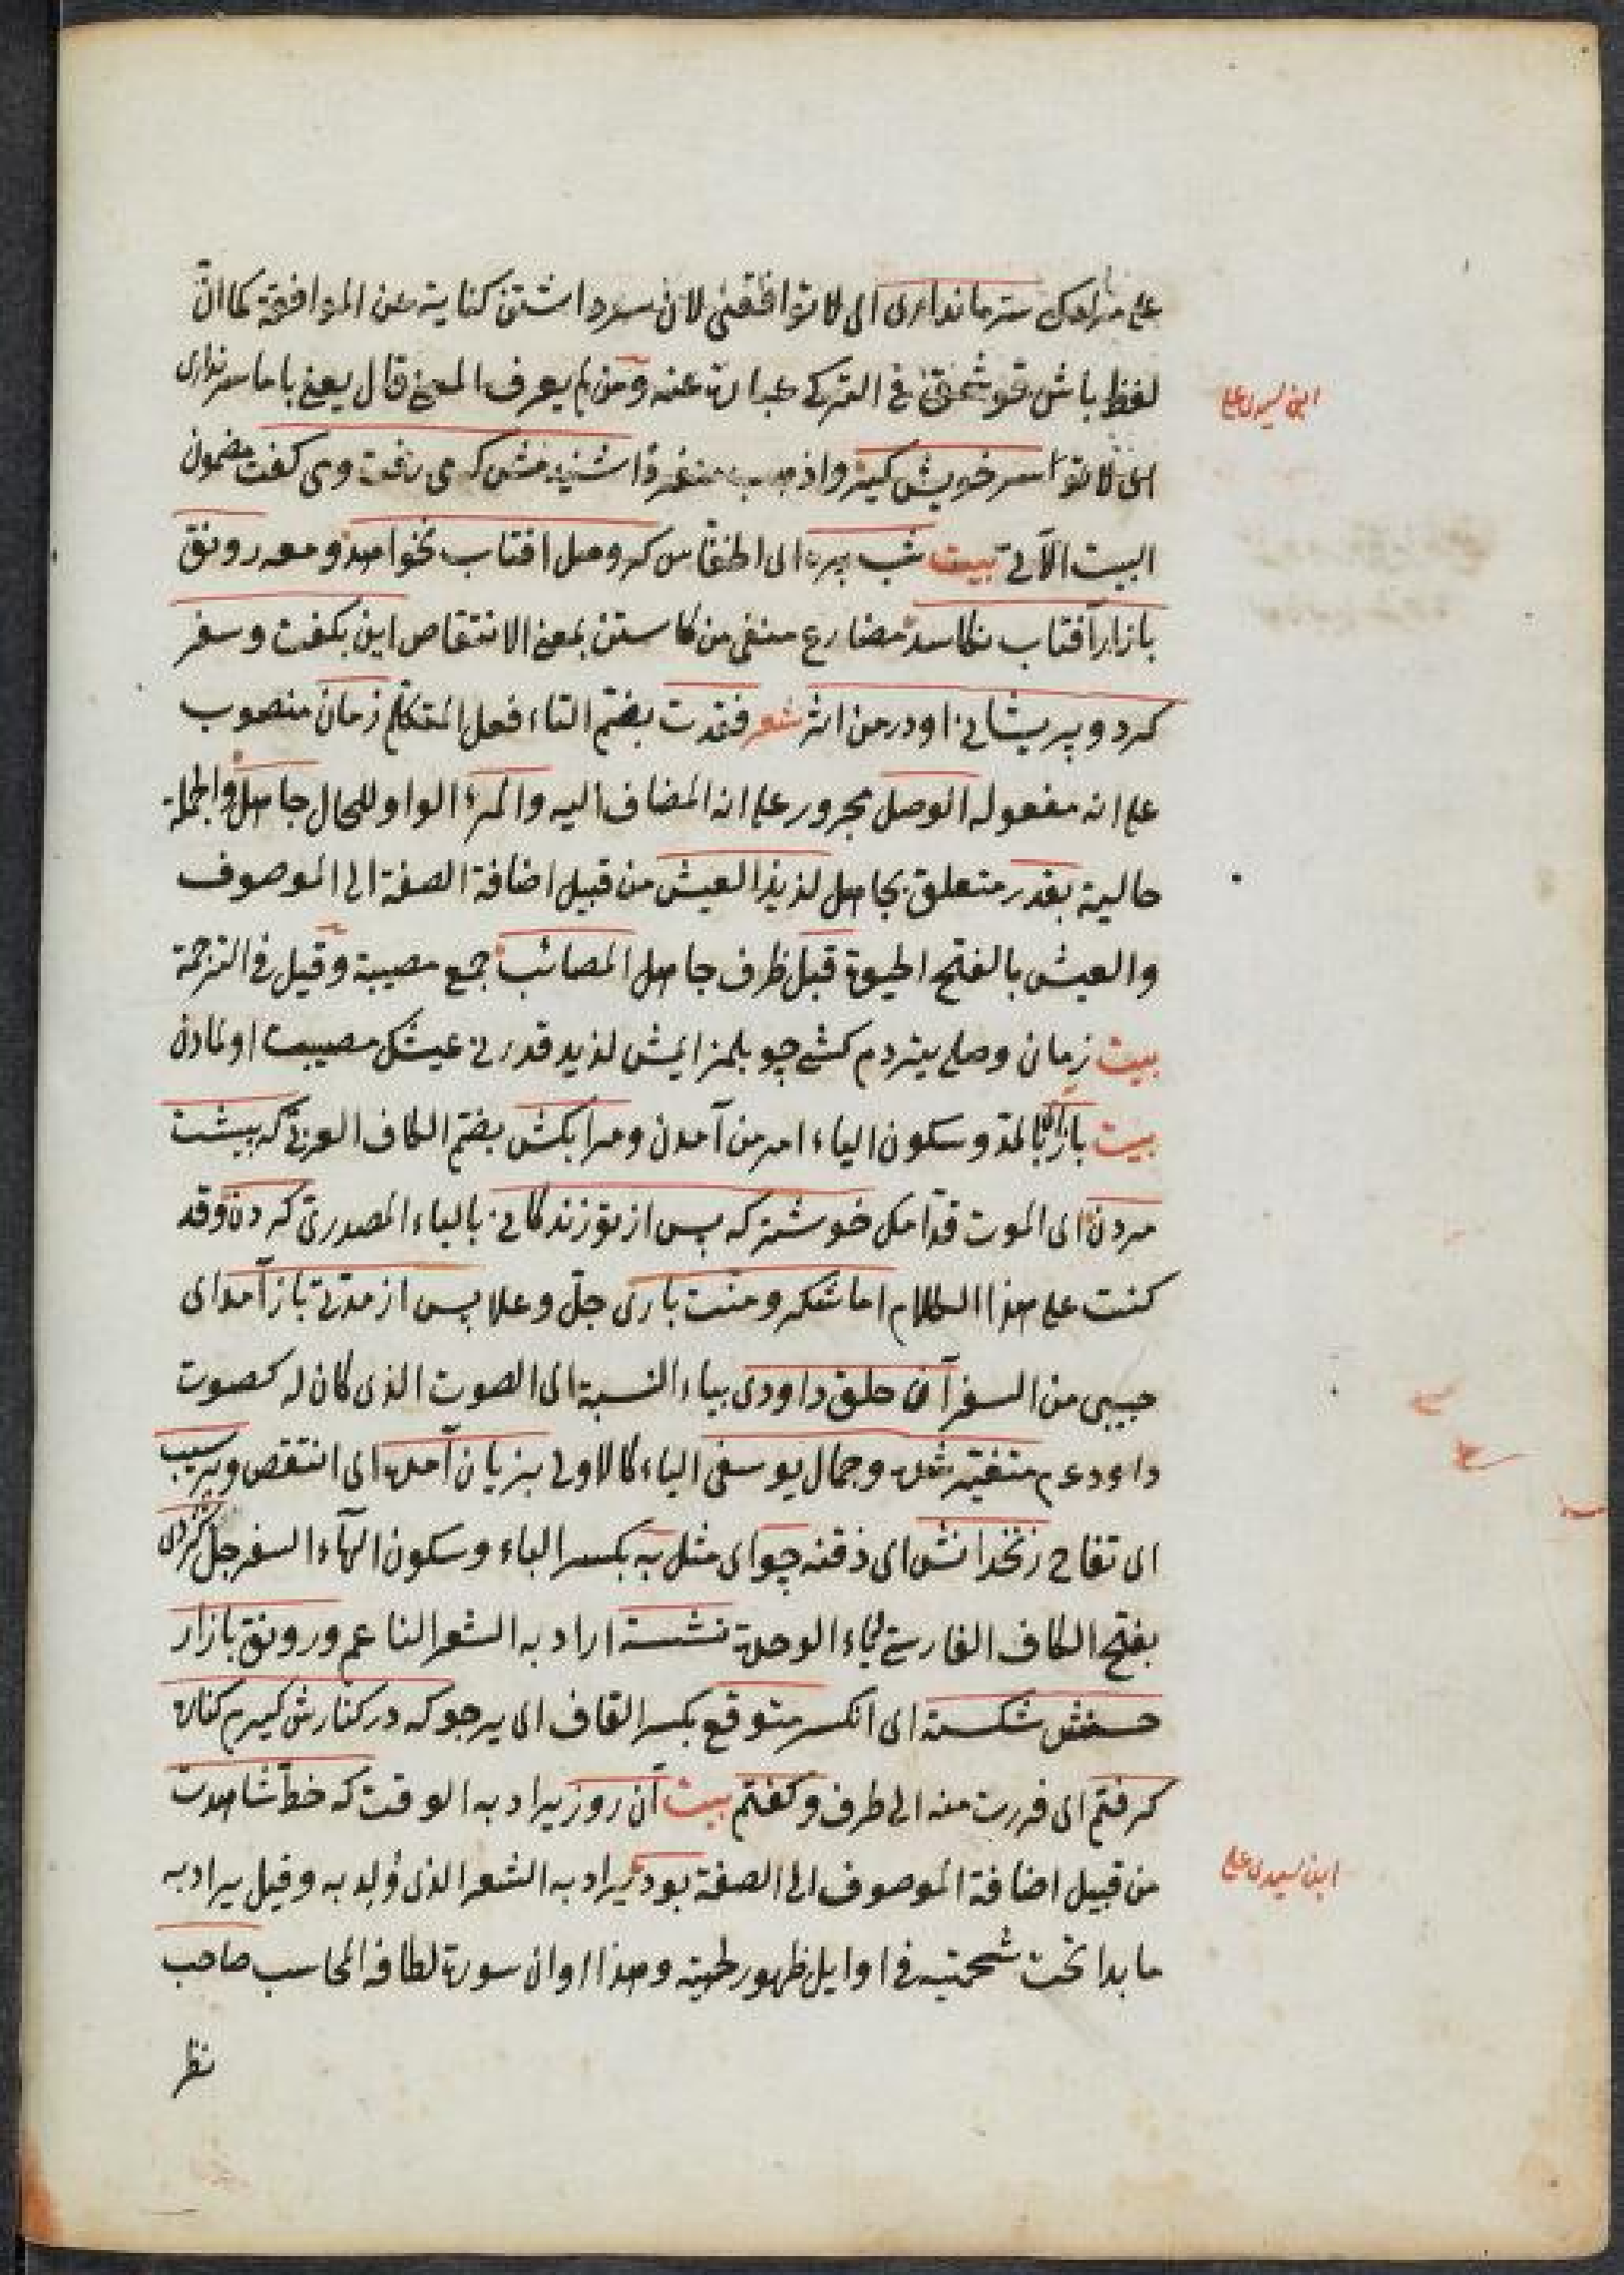 على منوالك سر ما نداری ای لا توافقنی لان سرداشتن كناية عن الموافقة كما ان
لفظ باش قوشمق فی التركی عبارة عنه ومن لم يعرف المعنى قال يعنی با ما سر نداری
ای لا تو سر خویش گیر واز شنیدمش كه می رفت ومی گفت مضمون
البيت الآتی بیت شب پره ای الخفاش كر وصل افتاب نخواهد ومعه رونق
بازار آفتاب نكاهد مضارع منفی من كاستن بمعنى الانتقاص این بكفت وسفر
كرد وپریشانی او در من اثر شعر فقدت بضم التاء فعل المتكلم زمان منصوب
على انه مفعوله الوصل مجرور على انه المضاف اليه والمرء الواو للحال جاهل والجملة
حالية بقدر متعلق بجاهل لذیذ العیش من قبيل اضافة الصفة الى الموصوف
والعيش بالفتح الحيوة قبل ظرف جاهل المصائب جمع مصيبة وقيل فی الترجمة
بیت زمان وصلی یتردم كشی چو بلمز ایمش لذید قدرنی عیشك مصیبت اولمادن
بیت باز آی بالمد وسكون الياء امر من آمدن ومرا بكش بضم الكاف العربی كه پیشت
مردن ای الموت قدامك خوشتر كه پس از تو زندكانی بالياء المصدری كردن وقد
كنت على هذا الكلام اما شكر ومنت باری جل وعلا پس از مدتی باز آمد ای
حبیبی من السفر آن حلق داودی بياء النسبة الى الصوت الذی كان له كصوت
داود عم متغیر شده وجمال یوسفی الياء كالاولى بزیان آمده ای انتقص وبر سیب
ای تفاح زنخدانش ای ذقنه چو ای مثل به بكسر الباء وسكون الهاء السفرجل كردی
بفتح الكاف الفارسی ياء الوحدة نشسته اراد به الشعر الناعم ورونق بازار
حسنش شكسته ای انكسر متوقع بكسر القاف ای يرجو كه در كنارش كیرم كناره
كرفتم ای فررت منه الى طرف وكفتم بیت آن روز يراد به الوقت كه خط شاهدت
من قبيل اضافة الموصوف الى الصفة بود يراد به الشعر الذی وُلد به وقيل يراد به
ما بدا تحت شحمتيه فی اوايل ظهور لحيته وهذا اوان سورة لطافه المحاسب صاحب
نظر
ابن سیدی علی
ابن سیدی علی